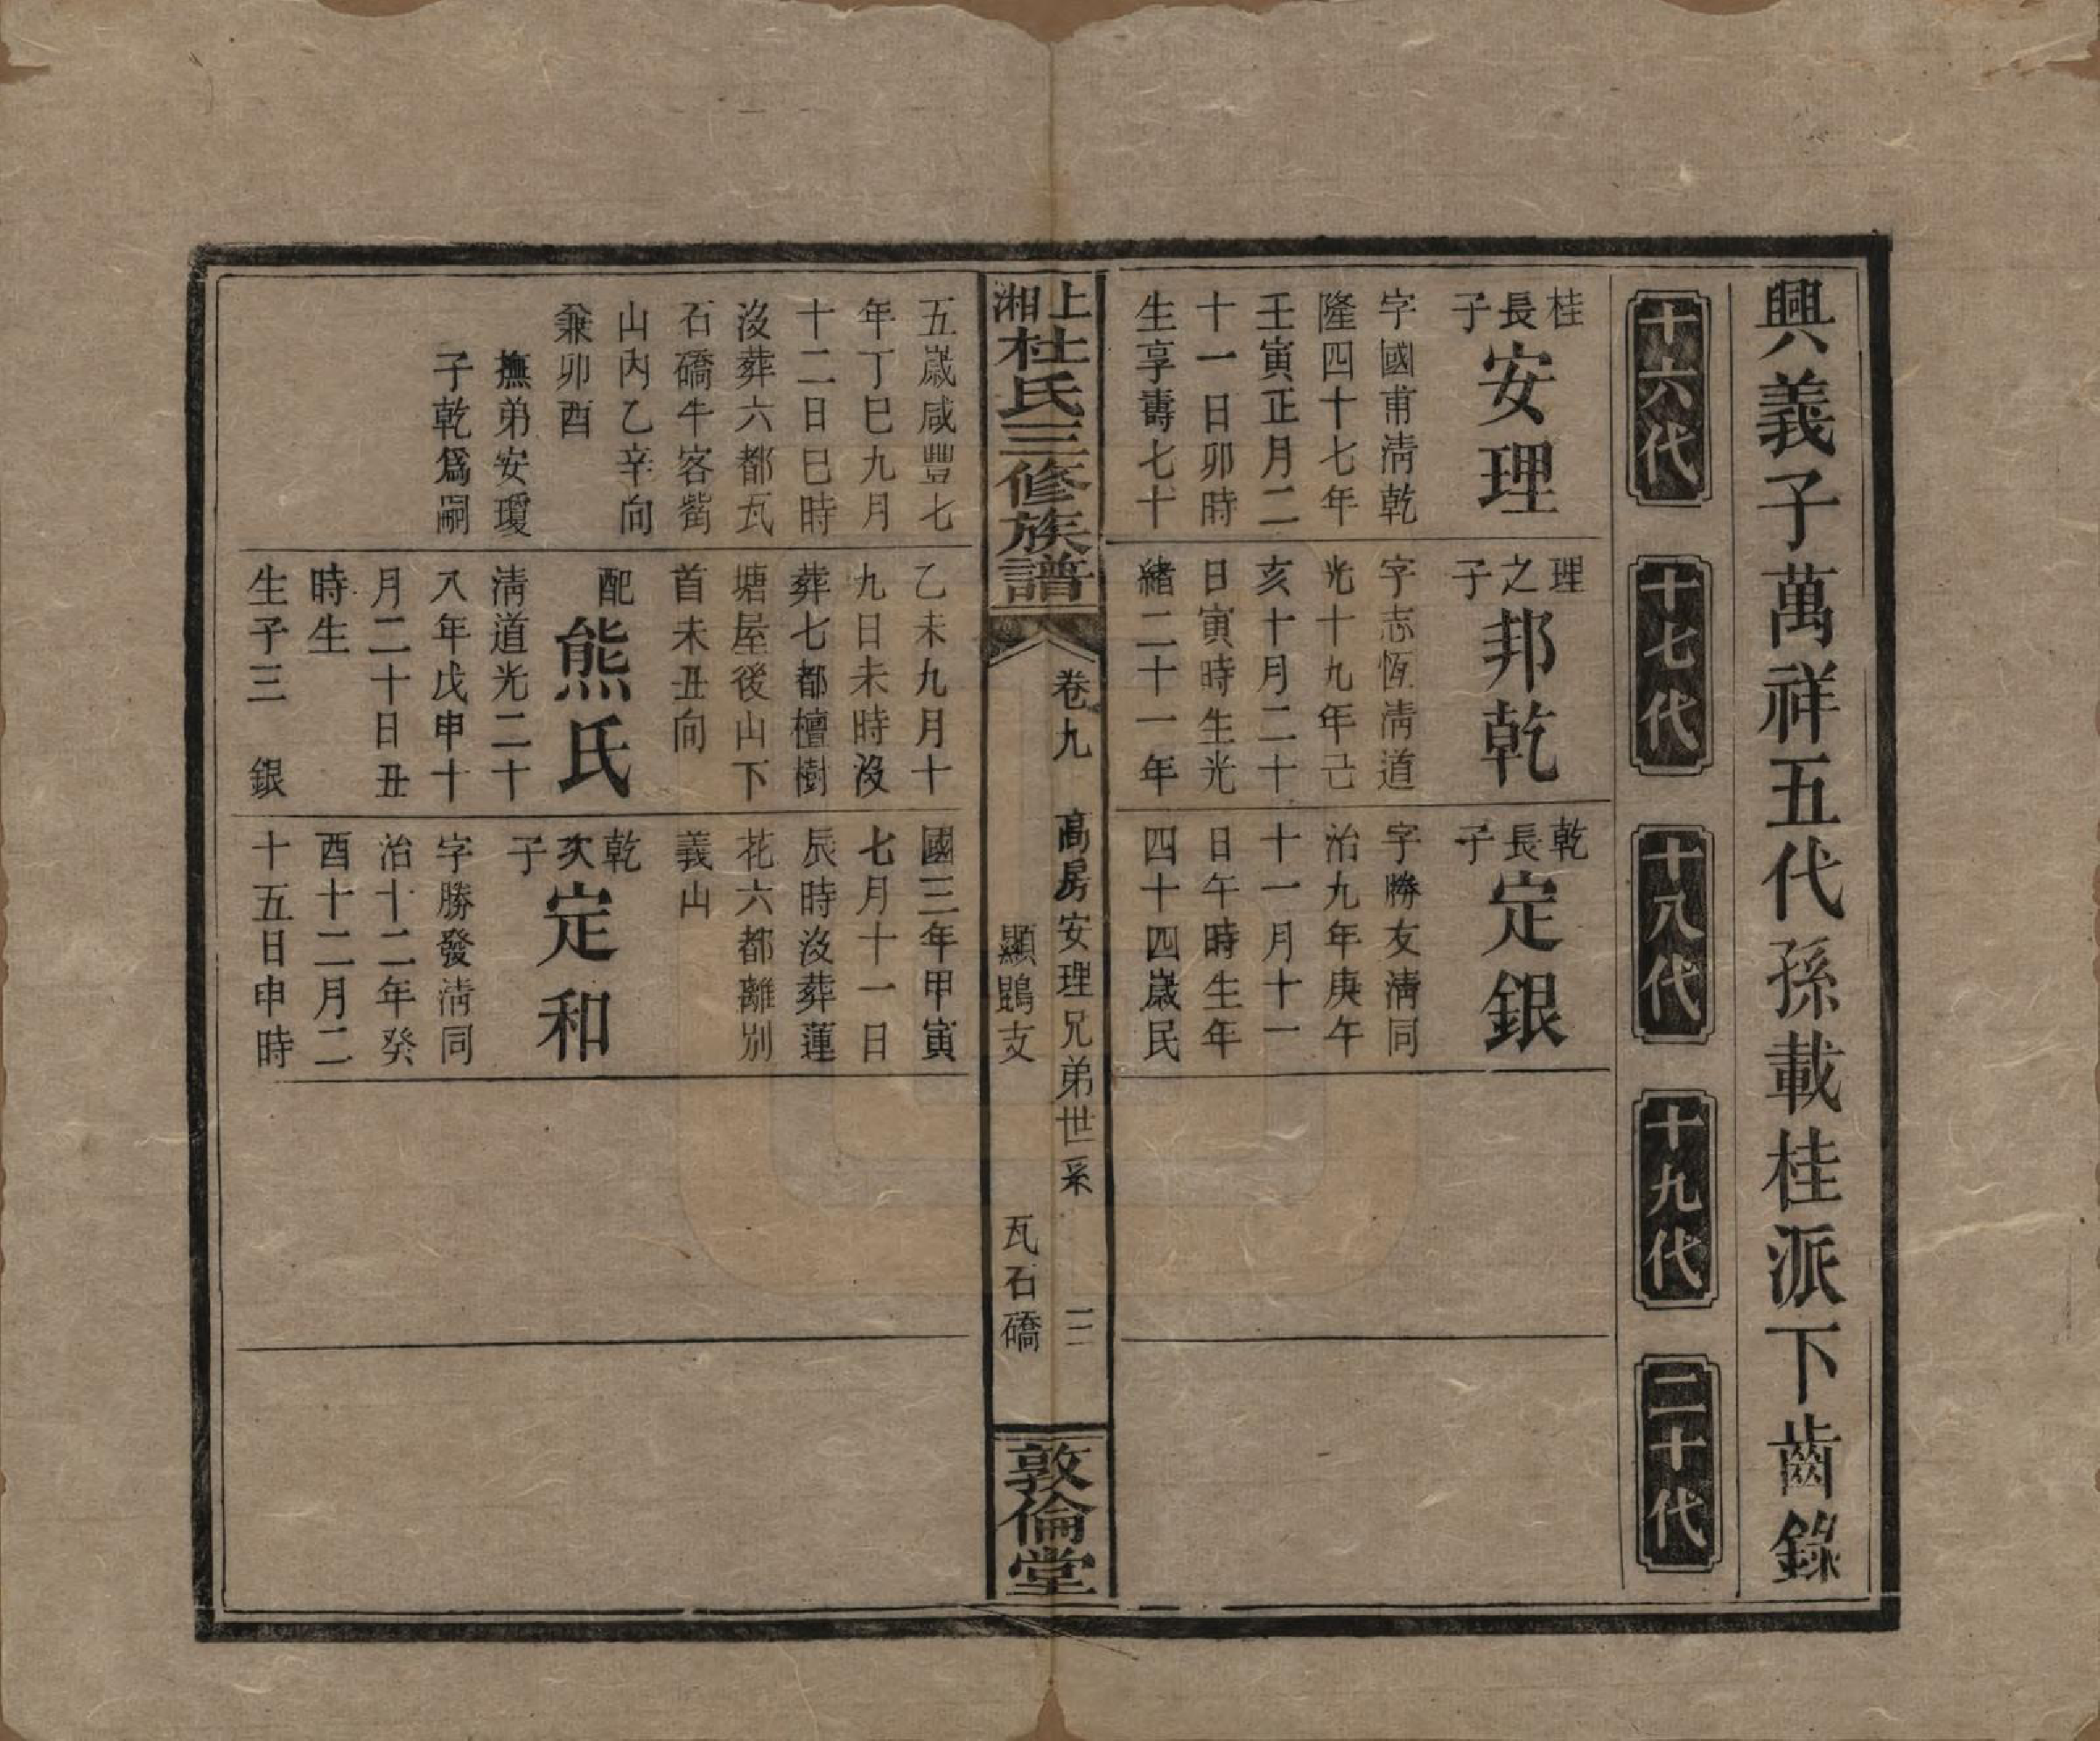 興義子萬祥五代孫載桂派下齒錄
十六代
十七代
十八代
十九代
二十代
桂長子
安理
字國甫淸乾
隆四十七年
壬寅正月二
十一日卯時
生享壽七十
理之子
邦乾
字志恆淸道
光十九年己
亥十月二十
日寅時生光
緒二十一年
乾長子
定銀
字勝友淸同
治九年庚午
十一月十一
日午時生年
四十四歲民
上湘杜氏三修族譜
卷九
高房安理兄弟世系
二
顯鵾支
瓦石礄
敦倫堂
五歲咸豐七
年丁巳九月
十二日巳時
沒葬六都瓦
石礄牛客嘴
山內乙辛向
兼卯酉
撫弟安瓊
子乾爲嗣
乙未九月十
九日未時沒
葬七都檀樹
塘屋後山下
首未丑向
配熊氏
淸道光二十
八年戊申十
月二十日丑
時生
生子三 銀
國三年甲寅
七月十一日
辰時沒葬蓮
花六都離別
義山
乾次子
定和
字勝發淸同
治十二年癸
酉十二月二
十五日申時